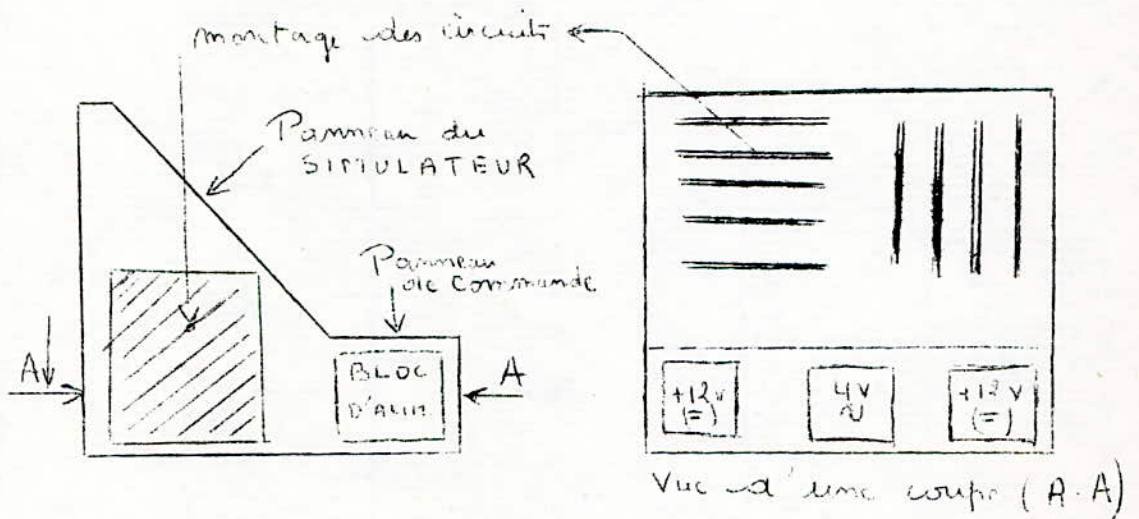 montage des circuits
Panneau du
SIMULATEUR
Panneau
de Commande
A
A
BLOC
D'ALIM
+12v
(=)
4v
~
+12v
(=)
Vue d'une coupe (A.A)